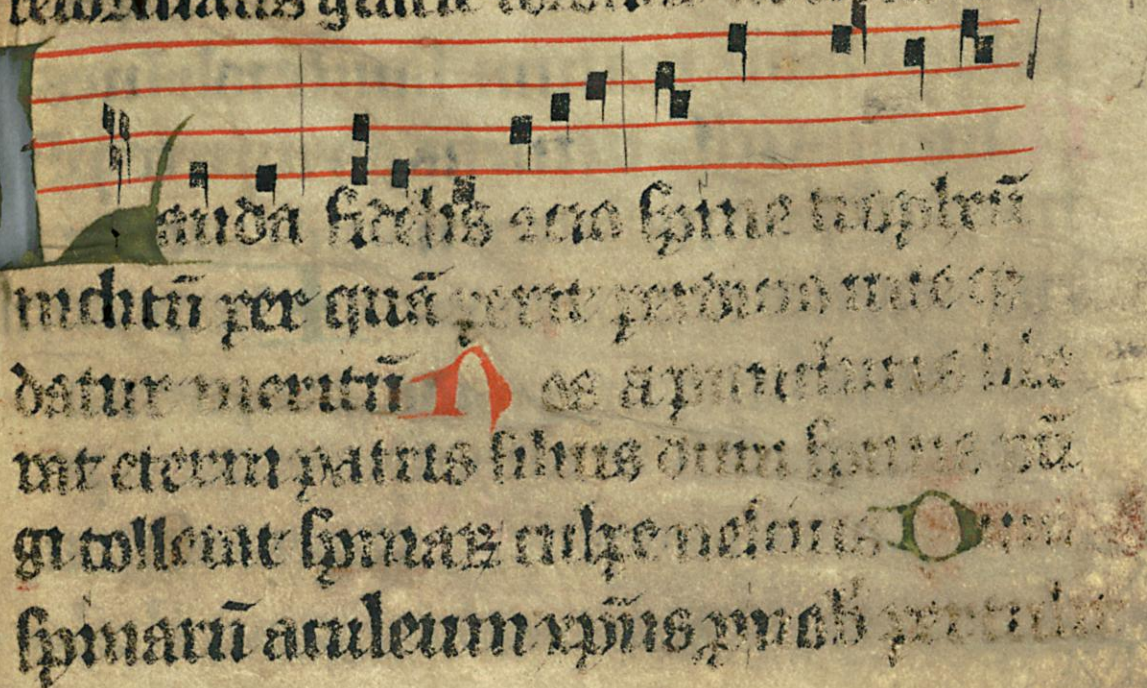 Lauda fidelis ↄcio spine tropheū
inclitū per quā perit perdicio uiteqꝫ
datur meritū Nos a puncturis libe
rat eterni patris filius dum spinis pū
gi tollerat spinaꝝ culpe nescius Dum
spinarū aculeum xp̄us ꝓ nob̄ pertulit